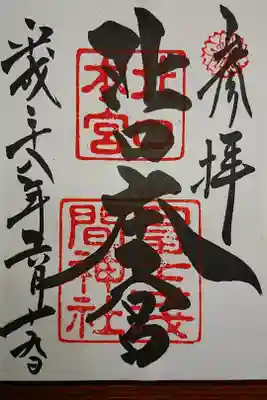 参拝
北口本宮
北口
本宮
冨士浅
間神社
平成二十八年五月十日